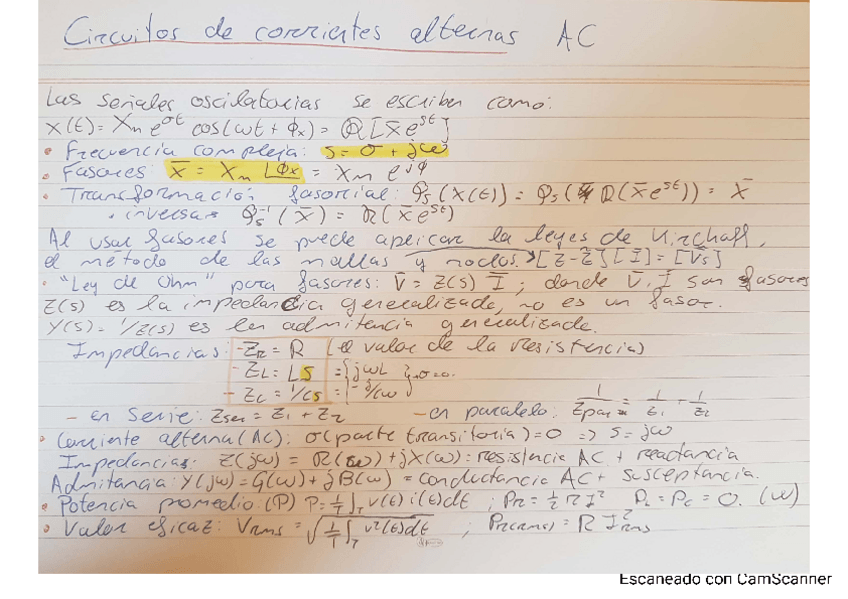 Circuitos de corrientes alternas AC
Las señales oscilatorias se escriben como:
x(t) = Xm e^σt cos(ωt + ϕx) = ℝ[x̄e^st]
• Frecuencia compleja: s = σ + jω
• Fasores: x̄ = Xm ∠ϕx = Xm e^jϕ
• Transformación fasorial: φs(x(t)) = φs(ℝ(x̄e^st)) = x̄
• inversa → φs⁻¹(x̄) = ℝ(x̄e^st)
Al usar fasores se puede aplicar la leyes de Kirchoff,
el método de las mallas y nodos. [Z-Z][I] = [Vs]
• "Ley de Ohm" para fasores: V̄ = Z(s) Ī ; donde V̄, Ī son fasores
Z(s) es la impedancia generalizada, no es un fasor.
Y(s) = 1/Z(s) es la admitencia generalizada.
Impedancias: - ZR = R (el valor de la resistencia)
- ZL = LS = {jωL } σ=0.
- Zc = 1/CS = {-j/Cω
- en serie: Zser = Z1 + Z2 - en paralelo: 1/Zpar = 1/Z1 + 1/Z2
• Corriente alterna (AC): σ(parte transitoria) = 0 => S = jω
Impedancias: Z(jω) = R(ω) + jX(ω) = resistencia AC + reactancia
Admitancia: Y(jω) = G(ω) + jB(ω) = conductancia AC + susceptancia.
• Potencia promedio: (P) P = 1/T ∫T v(t) i(t)dt ; PR = 1/2 R I² PL = Pc = 0. (W)
• Valor eficaz: Vrms = √(1/T ∫T v²(t)dt) ; PR(rms) = R I²rms
Escaneado con CamScanner